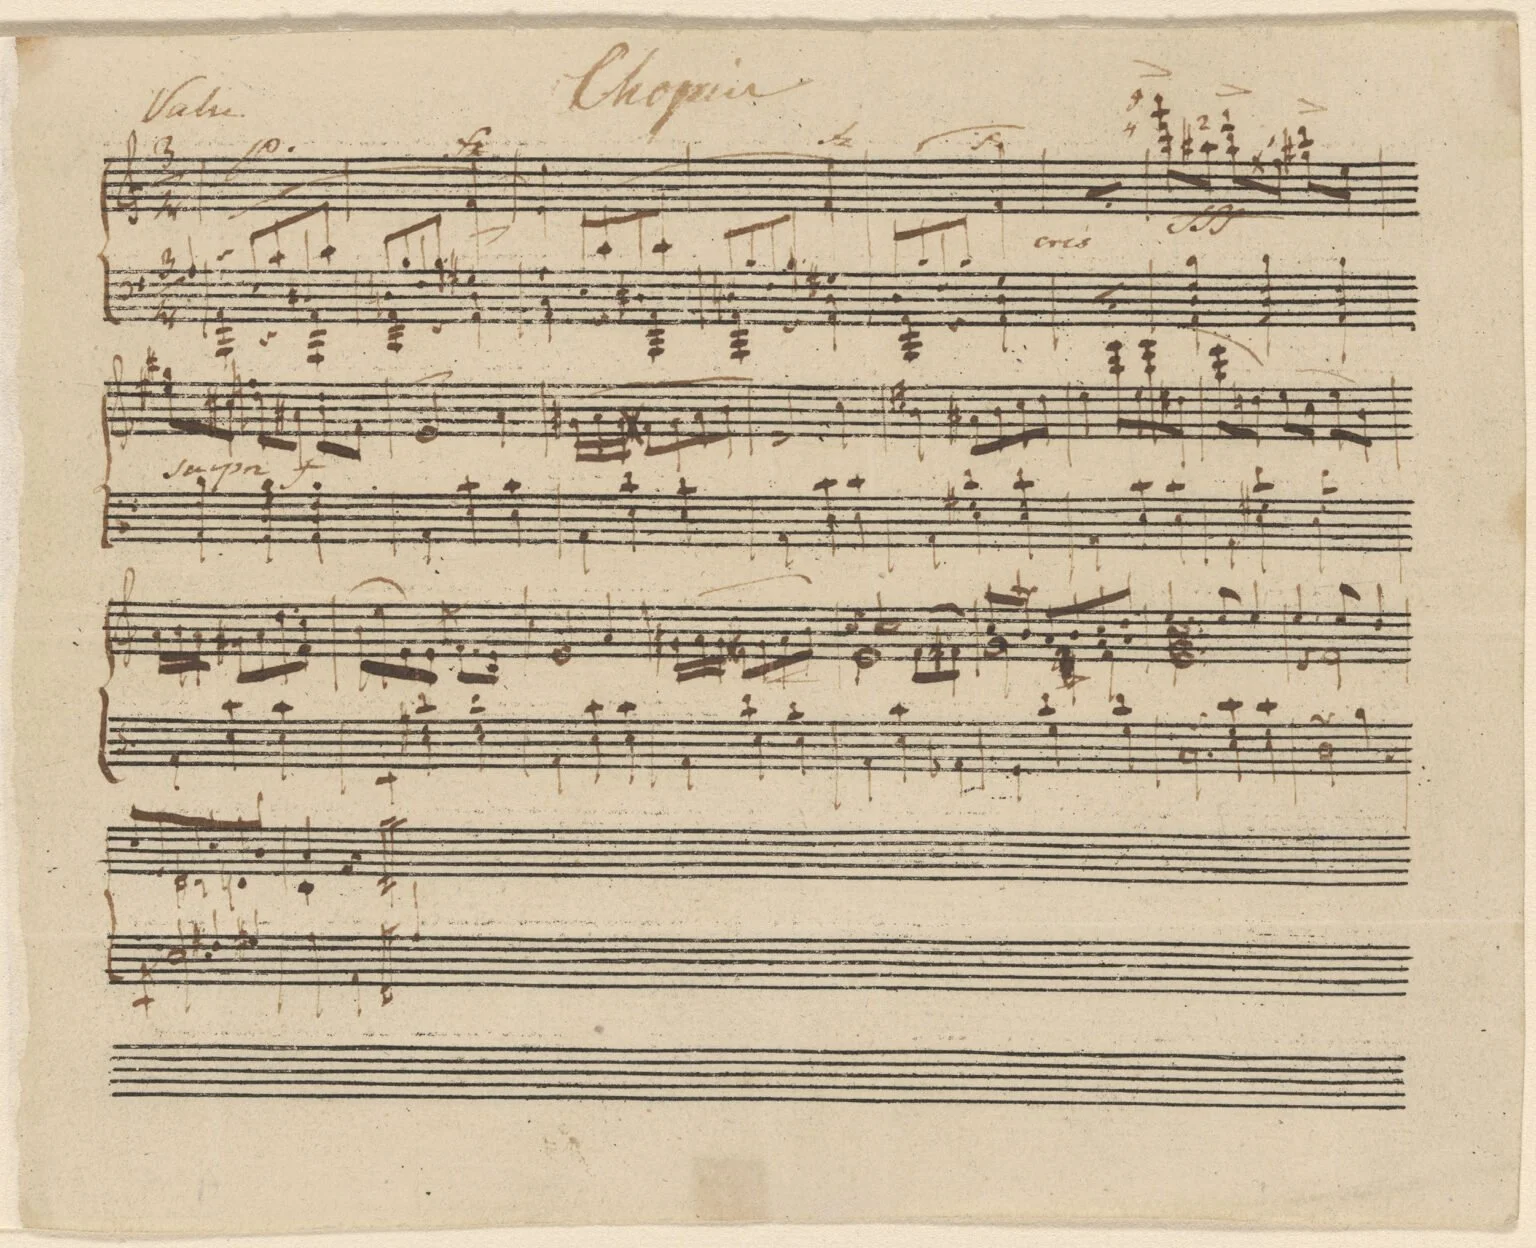 Chopin
Valse
3 4
p. fz fz fz
fff
3 4
cres
sempre f